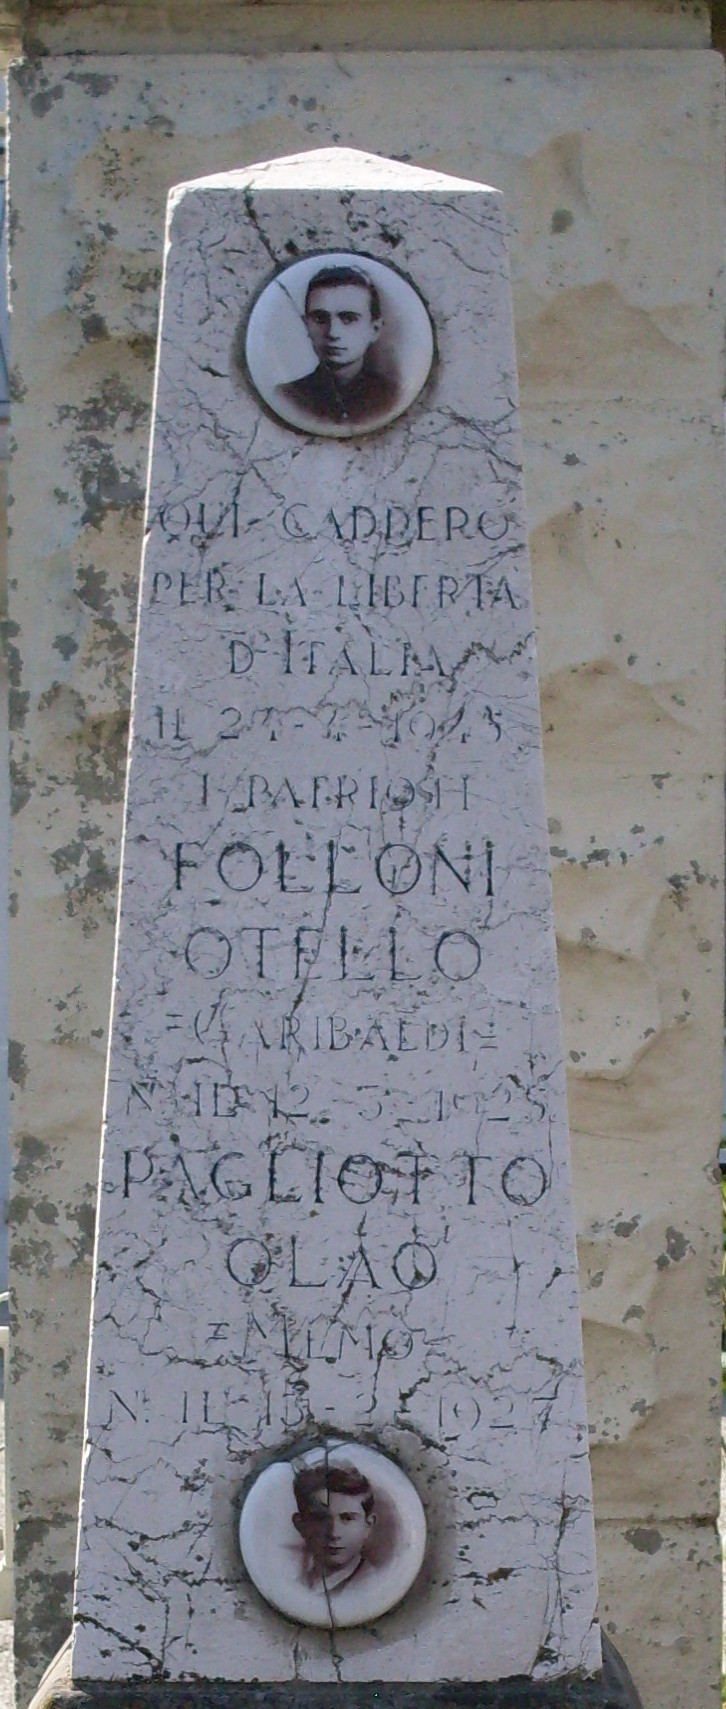 QUI CADDERO
PER LA LIBERTA
D'ITALIA
IL 24-4-1945
I PATRIOTI
FOLLONI
OTELLO
=GARIBALDI=
N. IL 12-3-1925
PAGLIOTTO
OLAO
=MEMO=
N. IL 13-2-1927